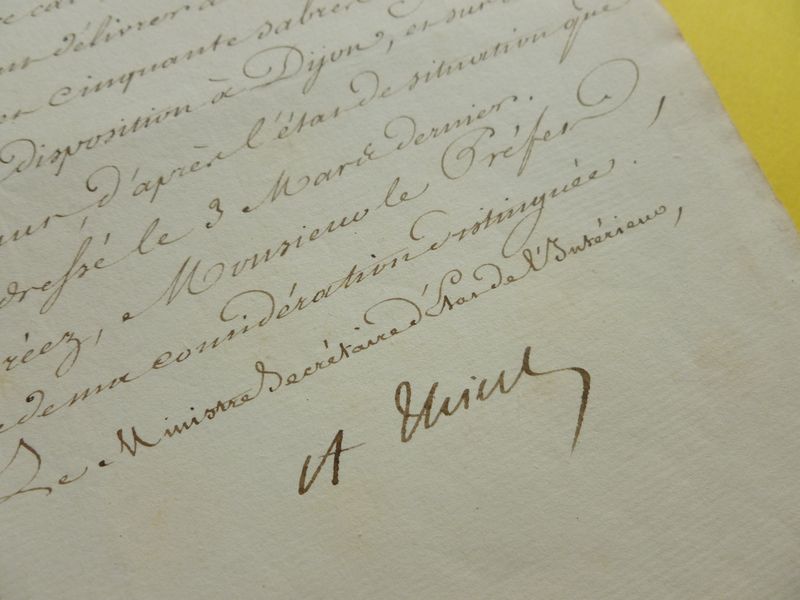 délivrer a
cinquante sabres
disposition à Dijon, et sur
d'après l'état de situation que
dressé le 3 Mars dernier.
réez, Monsieur le Préfet,
de ma considération distinguée.
Le Ministre Secrétaire d'Etat de l'Intérieur,
A Thiers